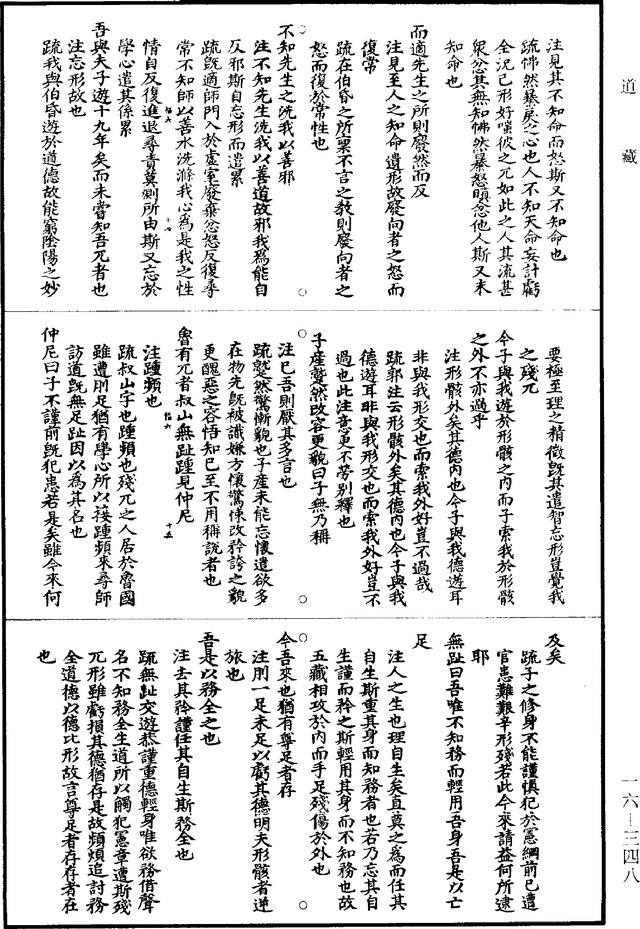 道藏
注見其不知命而怒斯又不知命也
疏怫然暴戾之心也人不知天命妄計虧
全況已形好嗤彼之兀如此之人其流甚
衆忿其無知怫然暴怒嗔忿他人斯又未
知命也
而適先生之所則廢然而反
注見至人之知命遺形故廢向者之怒而
復常
疏在伯昏之所稟不言之教則廢向者之
怒而復於常性也
不知先生之洗我以善邪
注不知先生洗我以善道故邪我為能自
反邪斯自忘形而遣累
疏既適師門入於虛室廢棄忿怒反復尋
常不知師以善水洗滌我心為是我之性
情自反復進退尋責莫測所由斯又忘於
學心遣其係累
吾與夫子遊十九年矣而未嘗知吾兀者也
注忘形故也
疏我與伯昏遊於道德故能窮陰陽之妙
要極至理之精微既其遣智忘形豈覺我
之殘兀
今子與我遊於形骸之內而子索我於形骸
之外不亦過乎
注形骸外矣其德內也今子與我德遊耳
非與我形交也而索我外好豈不過哉
疏郭注云形骸外矣其德內也今子與我
德遊耳非與我形交也而索我外好豈不
過也此注意更不勞別釋也
子產蹵然改容更貌曰子無乃稱
注已吾則厭其多言也
疏蹵然驚慚貌也子產未能忘懷遣欲多
在物先既被譏嫌方懷驚悚改矜誇之貌
更醜惡之容悟知已至不用稱說者也
魯有兀者叔山無趾踵見仲尼
注踵頻也
疏叔山字也踵頻也殘兀之人居於魯國
雖遭刖足猶有學心所以接踵頻來尋師
訪道既無足趾因以為其名也
仲尼曰子不謹前既犯患若是矣雖今來何
及矣
疏子之修身不能謹慎犯於憲綱前已遭
官患難艱辛形殘若此今來請益何所逮
耶
無趾曰吾唯不知務而輕用吾身吾是以亡
足
注人之生也理自生矣直莫之為而任其
自生斯重其身而知務者也若乃忘其自
生謹而矜之斯輕用其身而不知務也故
五藏相攻於內而手足殘傷於外也
今吾來也猶有尊足者存
注刖一足未足以虧其德明夫形骸者逆
旅也
吾是以務全之也
注去其矜謹任其自生斯務全也
疏無趾交遊恭謹重德輕身唯欲務借聲
名不知務全生道所以觸犯憲章遭斯殘
兀形雖虧損其德猶存是故頻煩追討務
全道德以德比形故言尊足者存存者在
也
一六—三四八